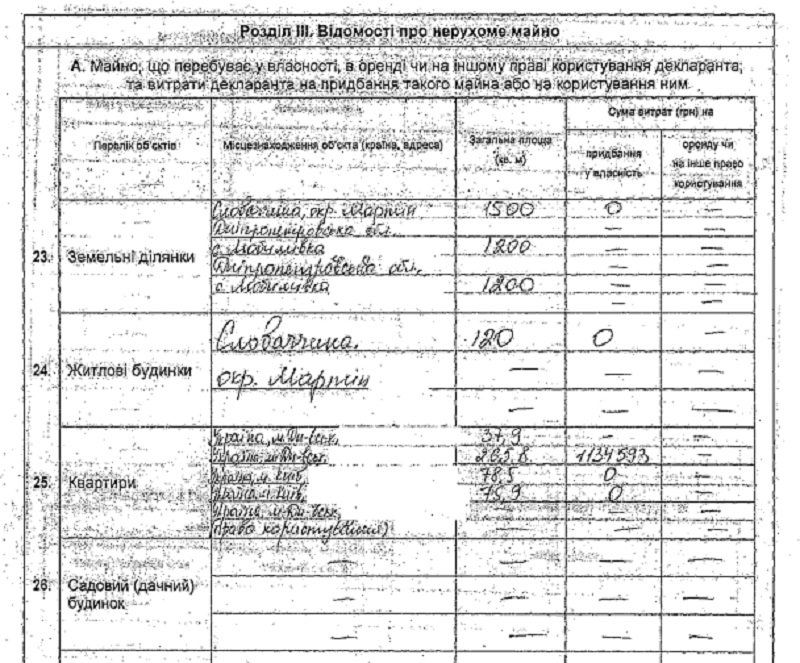 Розділ III. Відомості про нерухоме майно
А. Майно, що перебуває у власності, в оренді чи на іншому праві користування декларанта,
та витрати декларанта на придбання такого майна або на користування ним
Перелік об'єктів
Місцезнаходження об'єкта (країна, адреса)
Загальна площа
(кв. м)
Сума витрат (грн) на
придбання
у власність
оренду чи
на інше право
користування
23. Земельні ділянки
Словаччина, окр. Мартін 1500 0 —
Дніпропетровська обл. — —
с. 1200 — —
Дніпропетровська обл., — —
с. 1200 — —
— —
24. Житлові будинки
Словаччина. 120 0 —
окр. Мартін — — —
— — —
25. Квартири
Україна, м. Дн-вськ, 37,9 — —
Україна м. Дн-вськ, 265.8 1134593 —
Україна, м. Київ, 78,5 0 —
Україна, м. Київ, 75,9 0 —
Україна, м. Дн-вськ, — — —
(право користування) — — —
26. Садовий (дачний)
будинок
— — — —
— — — —
— — — —